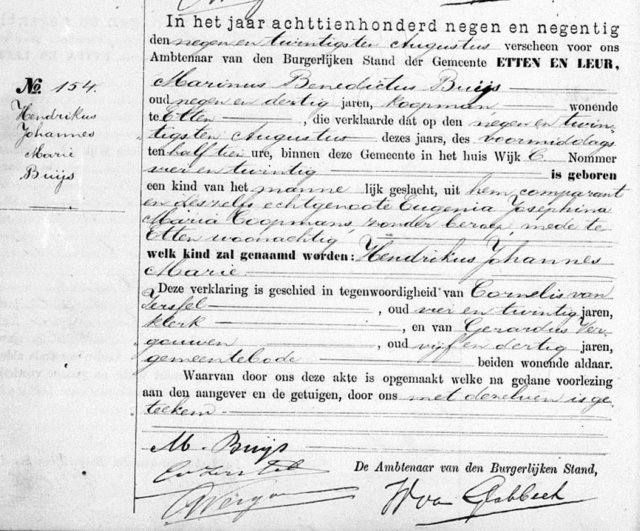 In het jaar achttienhonderd negen en negentig
den negen en twintigsten Augustus verscheen voor ons
Ambtenaar van den Burgerlijken Stand der Gemeente ETTEN EN LEUR,
No. 154.
Hendrikus
Johannes
Marie
Buijs
Marinus Benedictus Buijs
oud negen en dertig jaren, koopman wonende
te Etten, die verklaarde dat op den negen en twin-
tigsten Augustus dezes jaars, des voormiddags
ten half tien ure, binnen deze Gemeente in het huis Wijk C. Nommer
vier en twintig is geboren
een kind van het manne lijk geslacht, uit hem comparant
en deszelfs echtgenoote Eugenia Josephina
Maria Coopmans, zonder beroep, mede te
Etten woonachtig
welk kind zal genaamd worden: Hendrikus Johannes
Marie
Deze verklaring is geschied in tegenwoordigheid van Cornelis van
Iersel, oud vier en twintig jaren,
klerk, en van Gerardus Ver-
gouwen, oud vijf en dertig jaren,
gemeentebode beiden wonende aldaar.
Waarvan door ons deze akte is opgemaakt welke na gedane voorlezing
aan den aangever en de getuigen, door ons met dezelven is ge-
teekend
M. Buijs
De Ambtenaar van den Burgerlijken Stand,